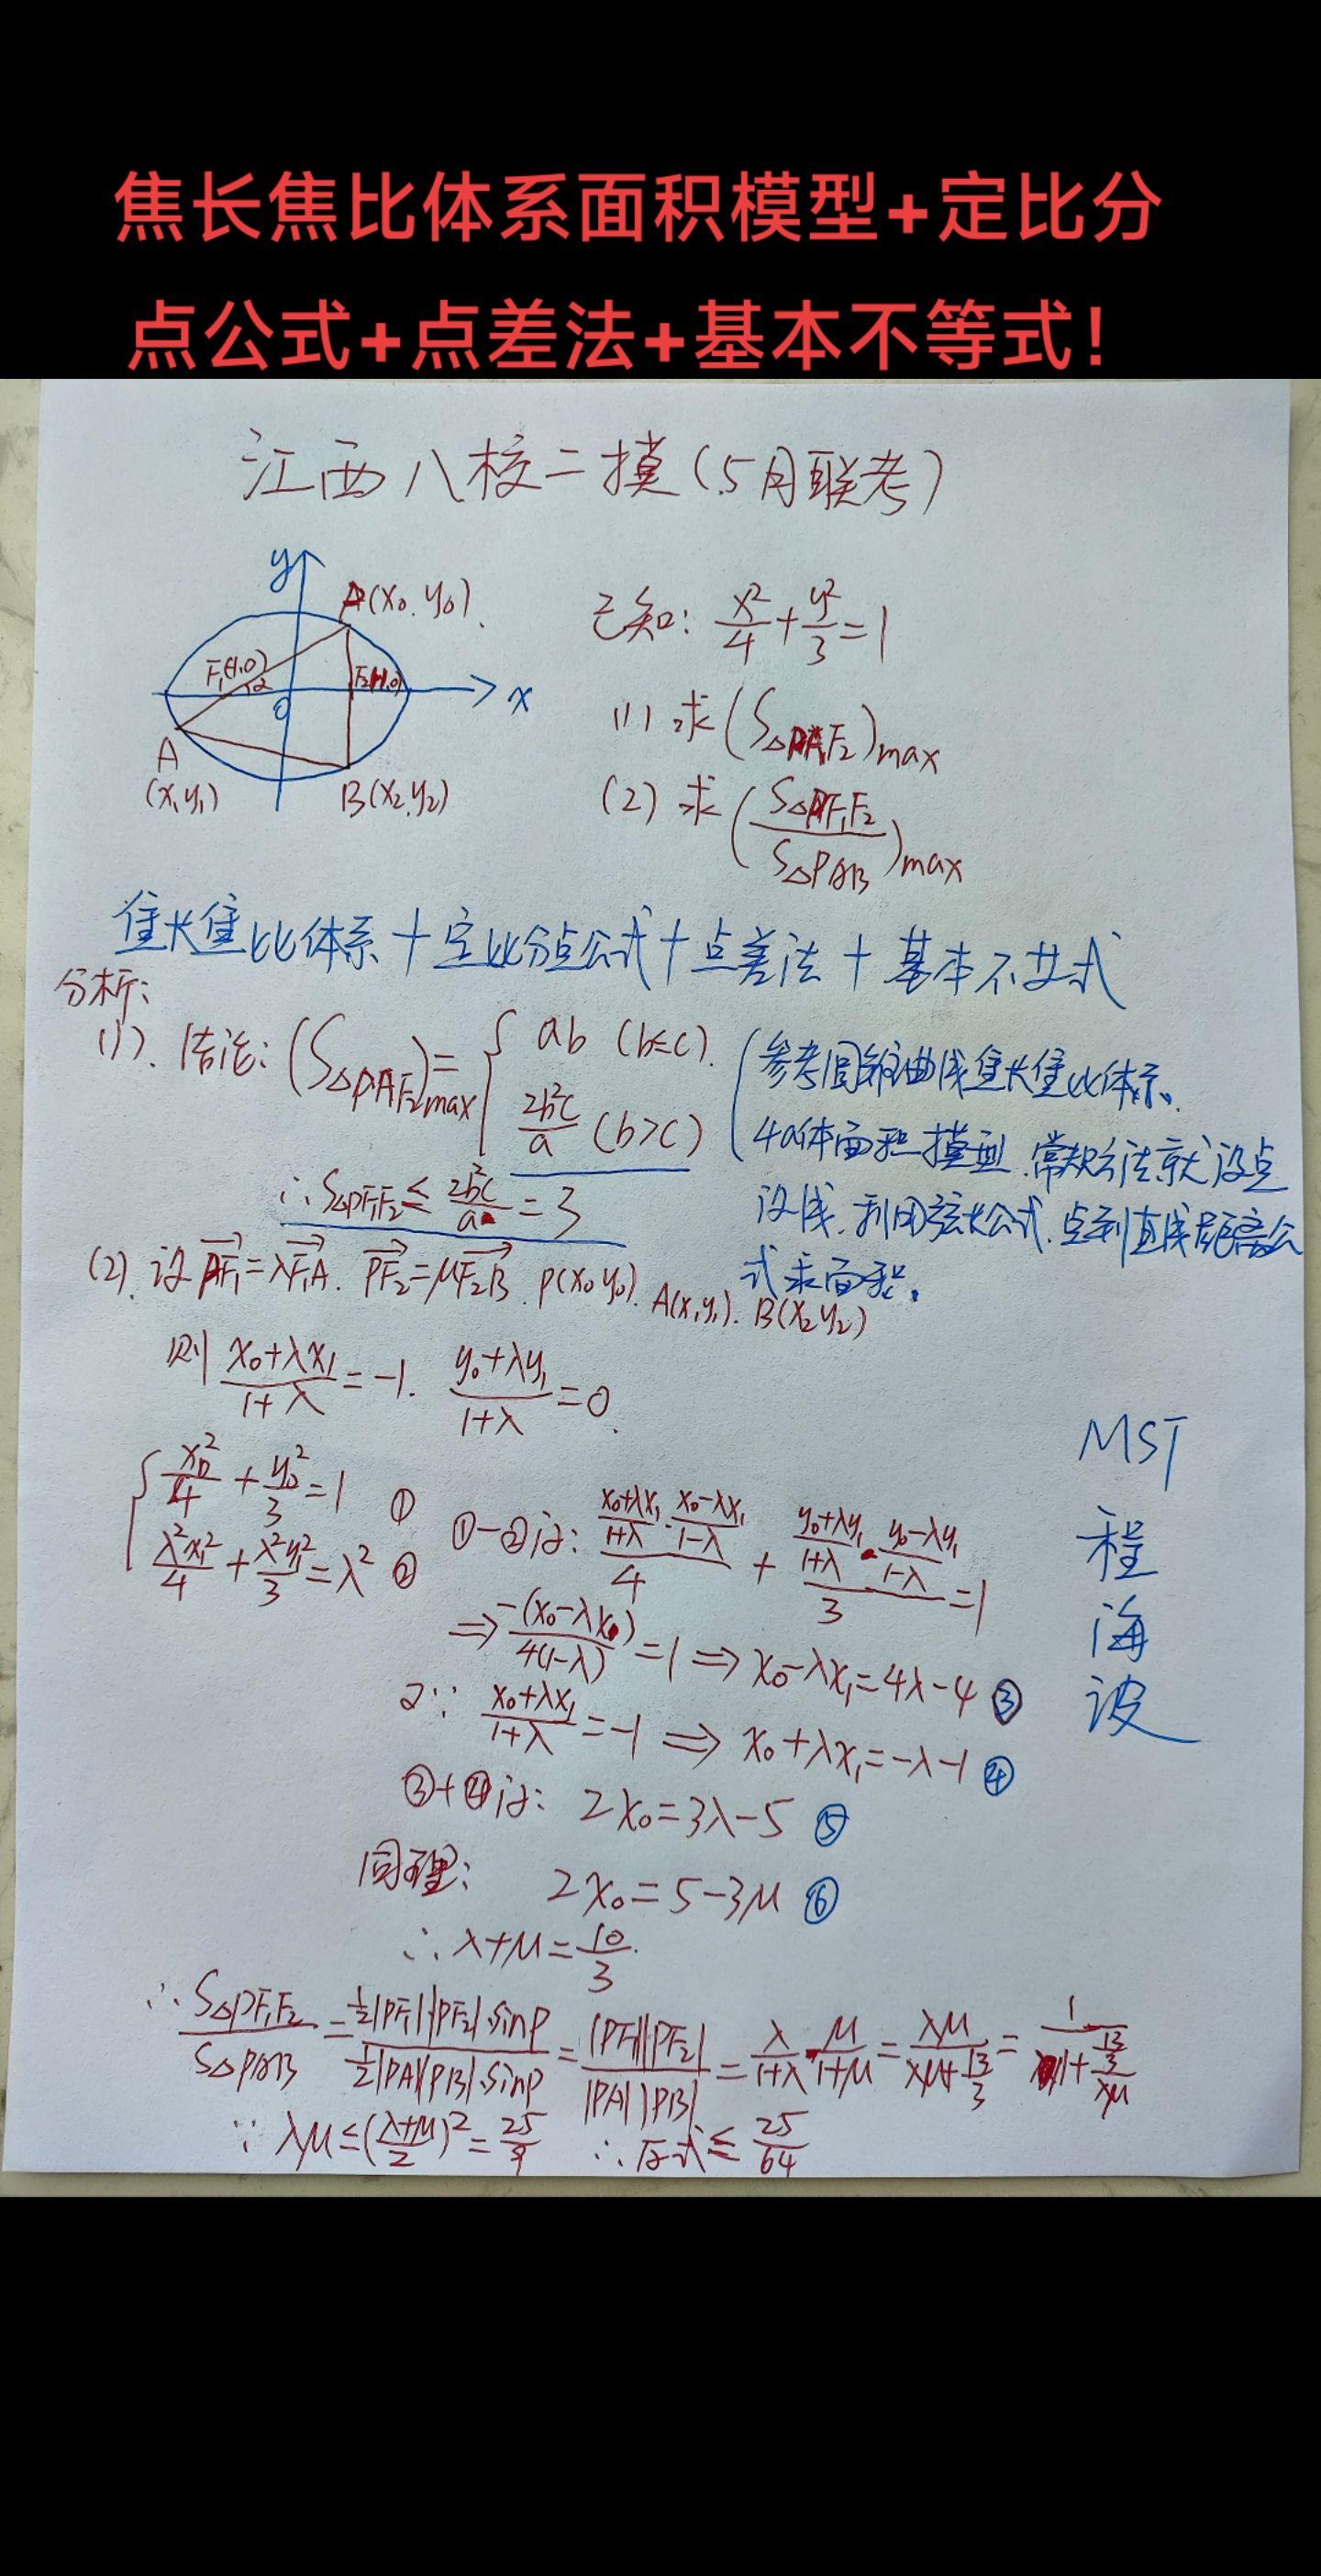 焦长焦比体系面积模型+定比分
点公式+点差法+基本不等式!
江西八校二摸(5月联考)
y
P(x₀.y₀).
F₁(-1,0)
α
F₂(1,0)
O
x
A
(x₁y₁)
B(x₂.y₂)
已知: x²/4+y²/3=1
(1) 求(S△PAF₂)max
(2) 求(S△PF₁F₂/S△PAB)max
焦长焦比体系+定比分点公式+点差法+基本不廿式
分析:
(1). 结论: (S△PAF₂)max={ab (b≤c). 2b²c/a (b>c)
(参考圆锥曲线焦长焦比体系、
4a体面积模型.常规方法就设点
设线.利用弦长公式.点到直线距离公
式求面积.
∴S△PF₁F₂≤2b²c/a=3
(2). 设PF₁=λF₁A. PF₂=μF₂B. P(x₀y₀). A(x₁y₁). B(x₂y₂)
则 (x₀+λx₁)/(1+λ)=-1. (y₀+λy₁)/(1+λ)=0.
{x₀²/4+y₀²/3=1 ①
λ²x₁²/4+λ²y₁²/3=λ² ②
①-②得: ((x₀+λx₁)/(1+λ)·(x₀-λx₁)/(1-λ))/4+((y₀+λy₁)/(1+λ)·(y₀-λy₁)/(1-λ))/3=1
⇒-(x₀-λx₁)/4(1-λ)=1⇒x₀-λx₁=4λ-4 ③
又∵ (x₀+λx₁)/(1+λ)=-1⇒x₀+λx₁=-λ-1 ④
③+④得: 2x₀=3λ-5 ⑤
同理: 2x₀=5-3μ ⑥
∴λ+μ=10/3.
∴S△PF₁F₂/S△PAB=½|PF₁||PF₂|.sinP/½|PA||PB|.sinP=|PF₁||PF₂|/|PA||PB|=λ/(1+λ)·μ/(1+μ)=λμ/(λμ+13/3)=1/(1+(13/3)/λμ)
∵λμ≤((λ+μ)/2)²=25/9 ∴原式≤25/64
MST
程
海
波